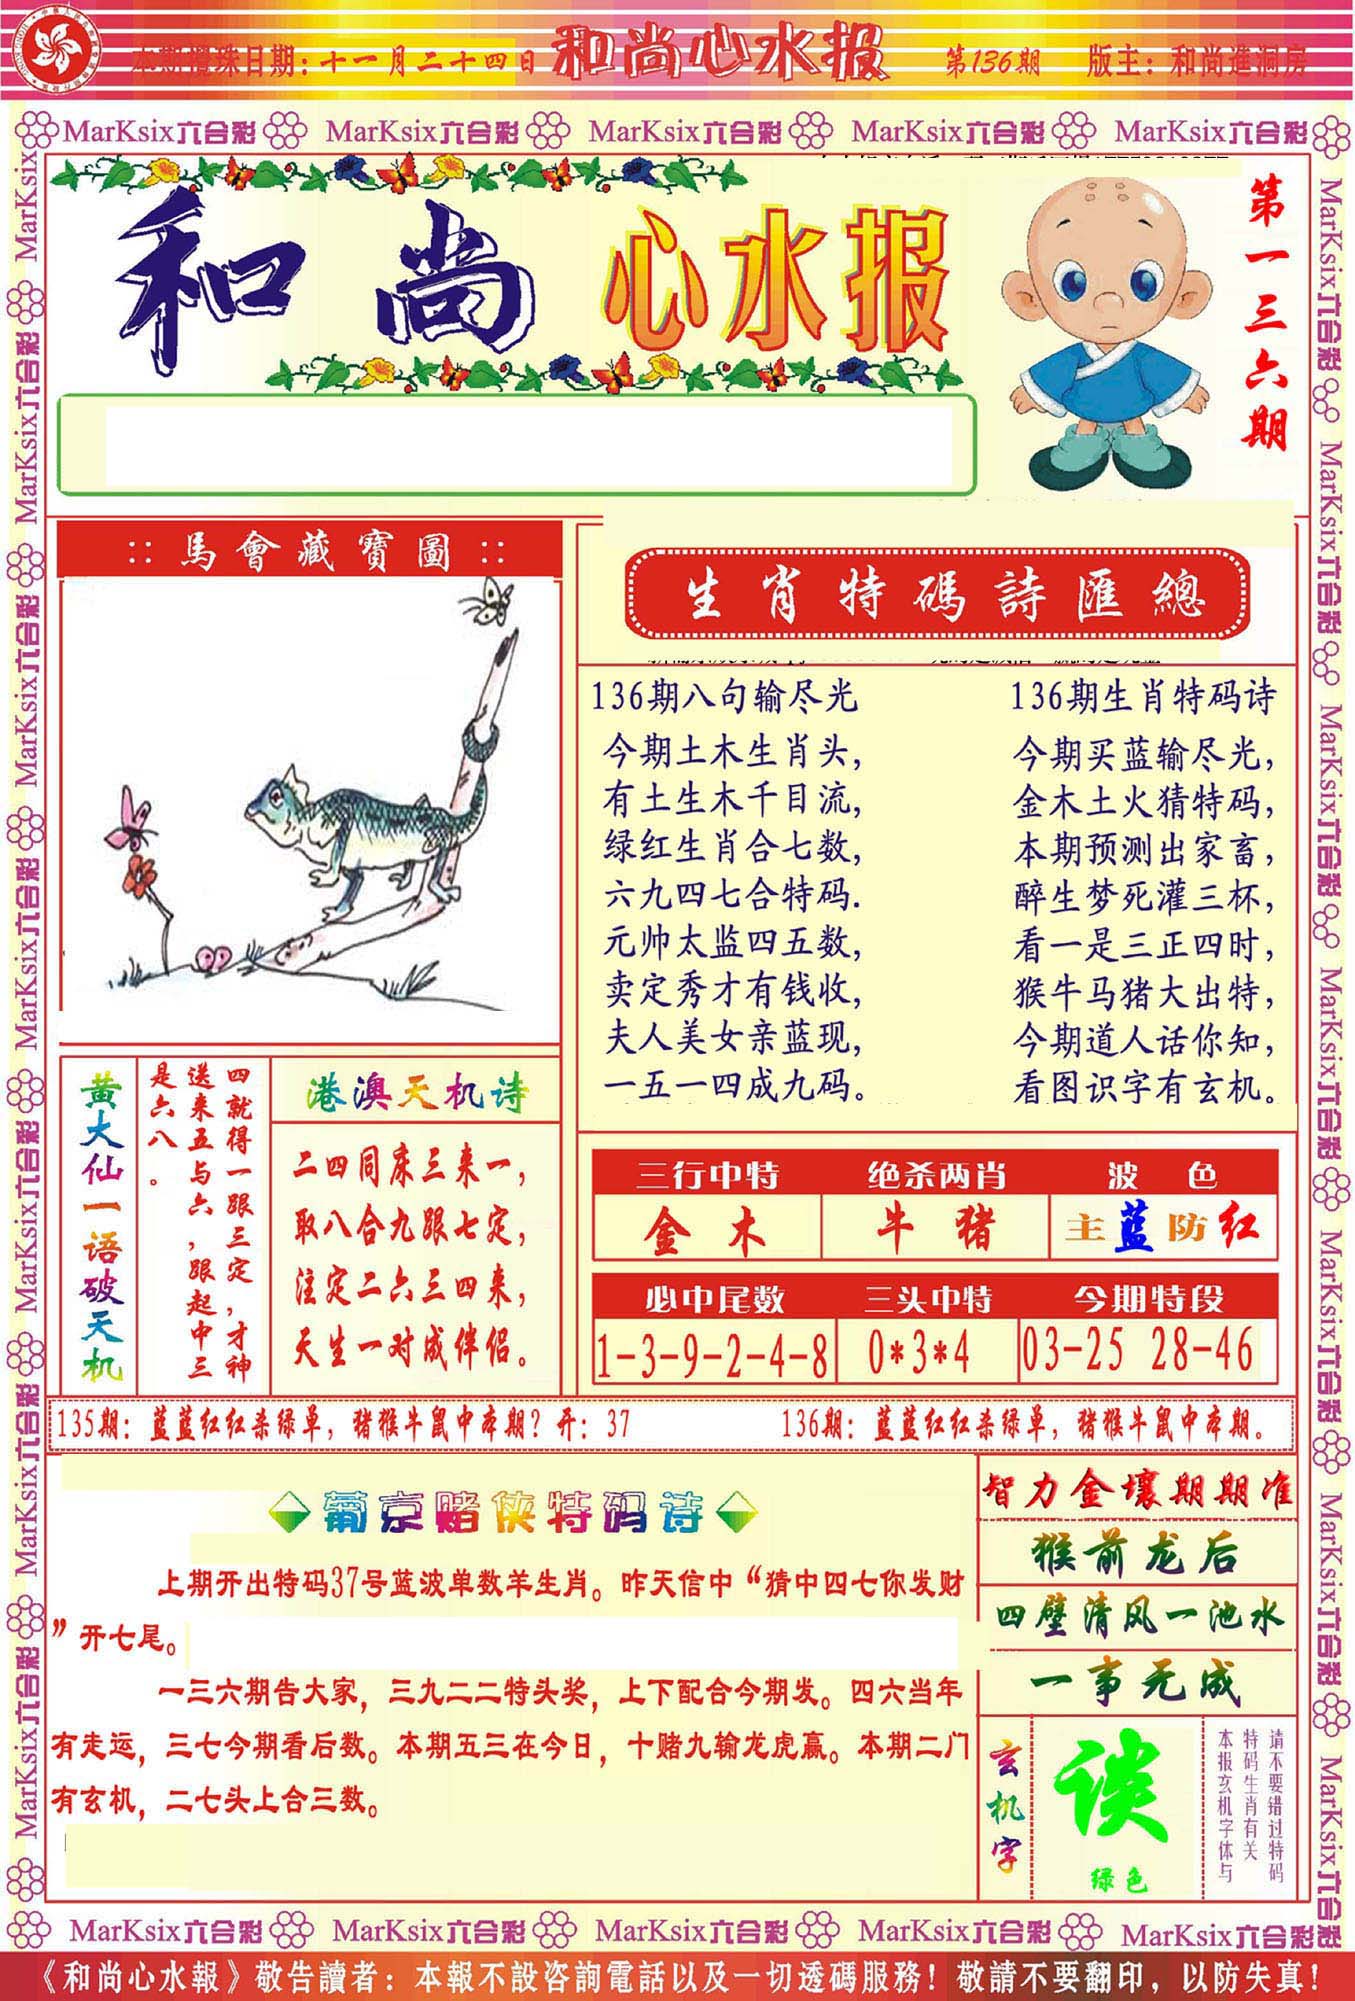 本期攪珠日期：十一月二十四日 和尚心水报 第136期 版主：和尚進洞房
MarKsix六合彩 MarKsix六合彩 MarKsix六合彩 MarKsix六合彩 MarKsix六合彩
和尚心水报
第一三六期
馬會藏寶圖
生肖特碼詩匯總
136期八句输尽光
今期土木生肖头，
有土生木千目流，
绿红生肖合七数，
六九四七合特码.
元帅太监四五数，
卖定秀才有钱收，
夫人美女亲蓝现，
一五一四成九码。
136期生肖特码诗
今期买蓝输尽光，
金木土火猜特码，
本期预测出家畜，
醉生梦死灌三杯，
看一是三正四时，
猴牛马猪大出特，
今期道人话你知，
看图识字有玄机。
黄大仙一语破天机
四就得一跟三定，才神
送来五与六，跟起中三
是六八。
港澳天机诗
二四同床三来一，
取八合九跟七定，
注定二六三四来，
天生一对成伴侣。
三行中特 绝杀两肖 波色
金木 牛猪 主蓝防红
必中尾数 三头中特 今期特段
1-3-9-2-4-8 0*3*4 03-25 28-46
135期：蓝蓝红红杀绿单，猪猴牛鼠中本期？开：37
136期：蓝蓝红红杀绿单，猪猴牛鼠中本期。
葡京赌侠特码诗
上期开出特码37号蓝波单数羊生肖。昨天信中“猜中四七你发财
”开七尾。
一三六期告大家，三九二二特头奖，上下配合今期发。四六当年
有走运，三七今期看后数。本期五三在今日，十赌九输龙虎赢。本期二门
有玄机，二七头上合三数。
智力金壤期期准
猴前龙后
四壁清风一池水
一事无成
玄机字
谈
绿色
请不要错过特码
特码生肖有关
本报玄机字体与
MarKsix六合彩 MarKsix六合彩 MarKsix六合彩 MarKsix六合彩 MarKsix六合彩
《和尚心水報》敬告讀者：本報不設咨詢電話以及一切透碼服務！敬請不要翻印，以防失真！